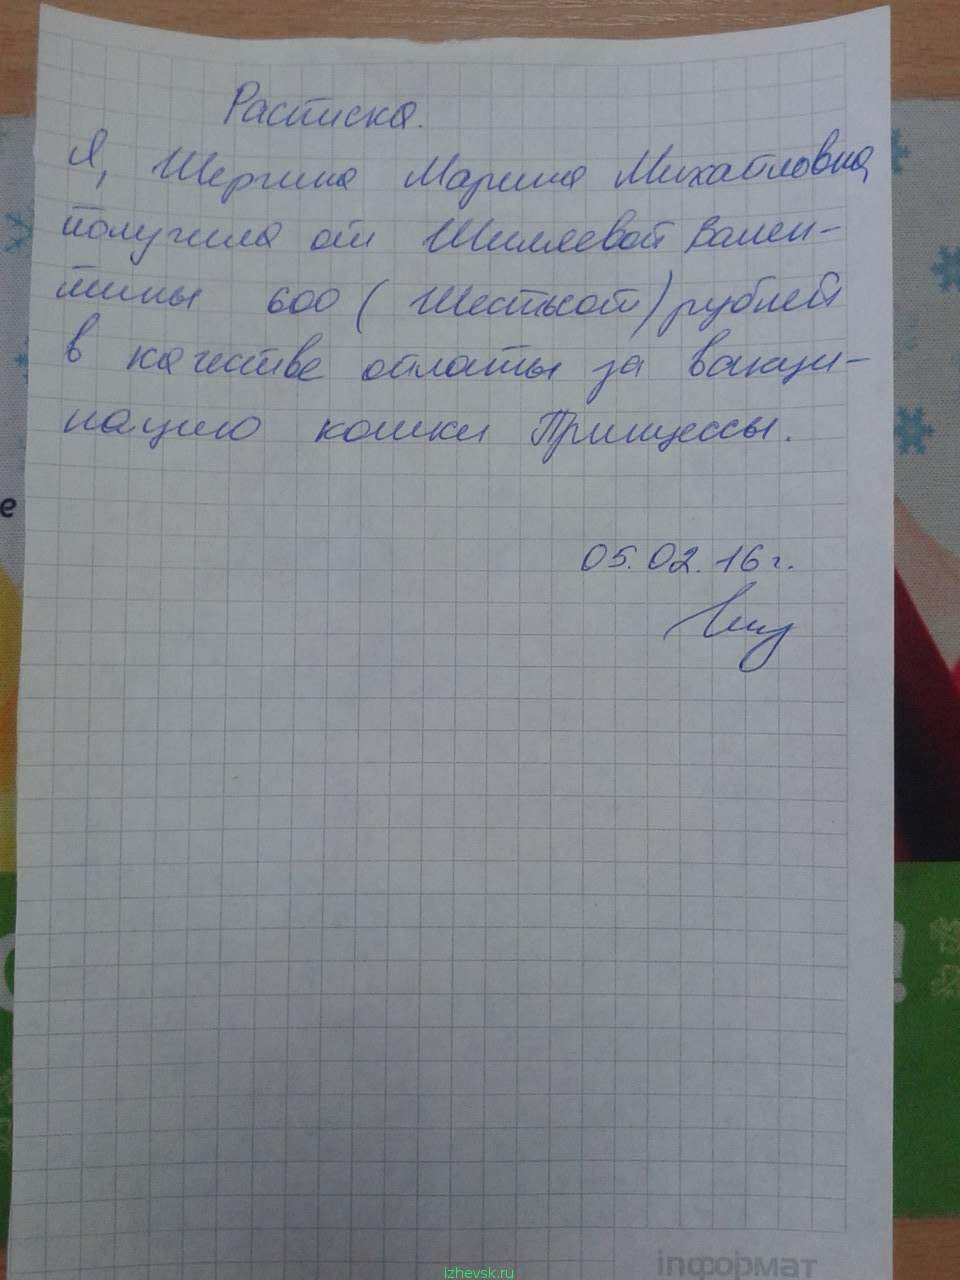 Расписка.
Я, Шергина Марина Михайловна,
получила от Шиляевой Вален-
тины 600 (Шестьсот) рублей
в качестве оплаты за вакци-
нацию кошки Принцессы.
05.02.16 г.
е
!
інформат
izhevsk.ru